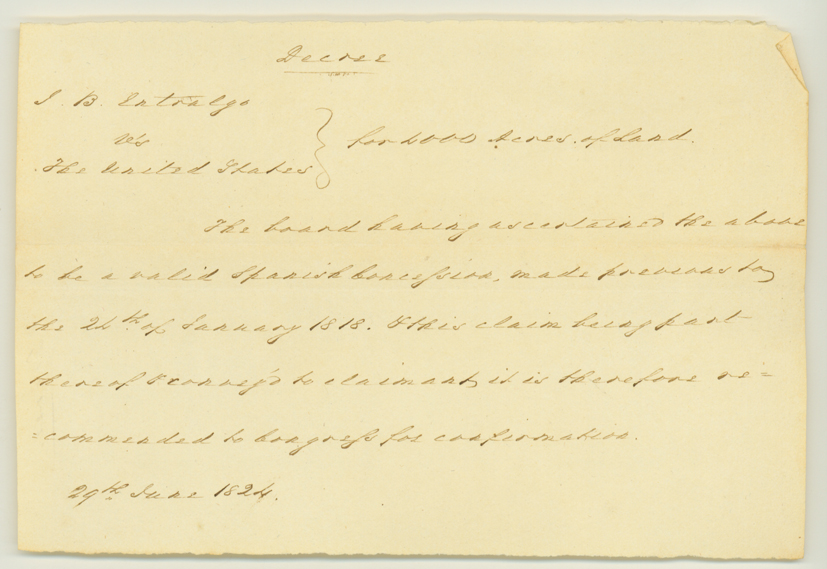 Decree
J. B. Entralgo
vs
The United States } for 4000 Acres of Land.
The board having ascertained the above
to be a valid Spanish Concession, made previous to
the 24th of January 1818. & this claim being part
thereof & convey'd to claimant, it is therefore re=
=commended to Congress for confirmation.
29th June 1824.